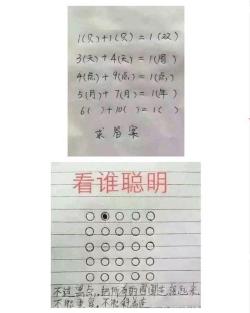 1(只)+1(只)=1(双)
3(天)+4(天)=1(周)
4(点)+9(点)=1(点)
5(月)+7(月)=1(年)
6( )+10( )=1( )
求答案
看谁聪明
不过黑点,把所有的圆圈连接起来,
不能重复,不能斜着连